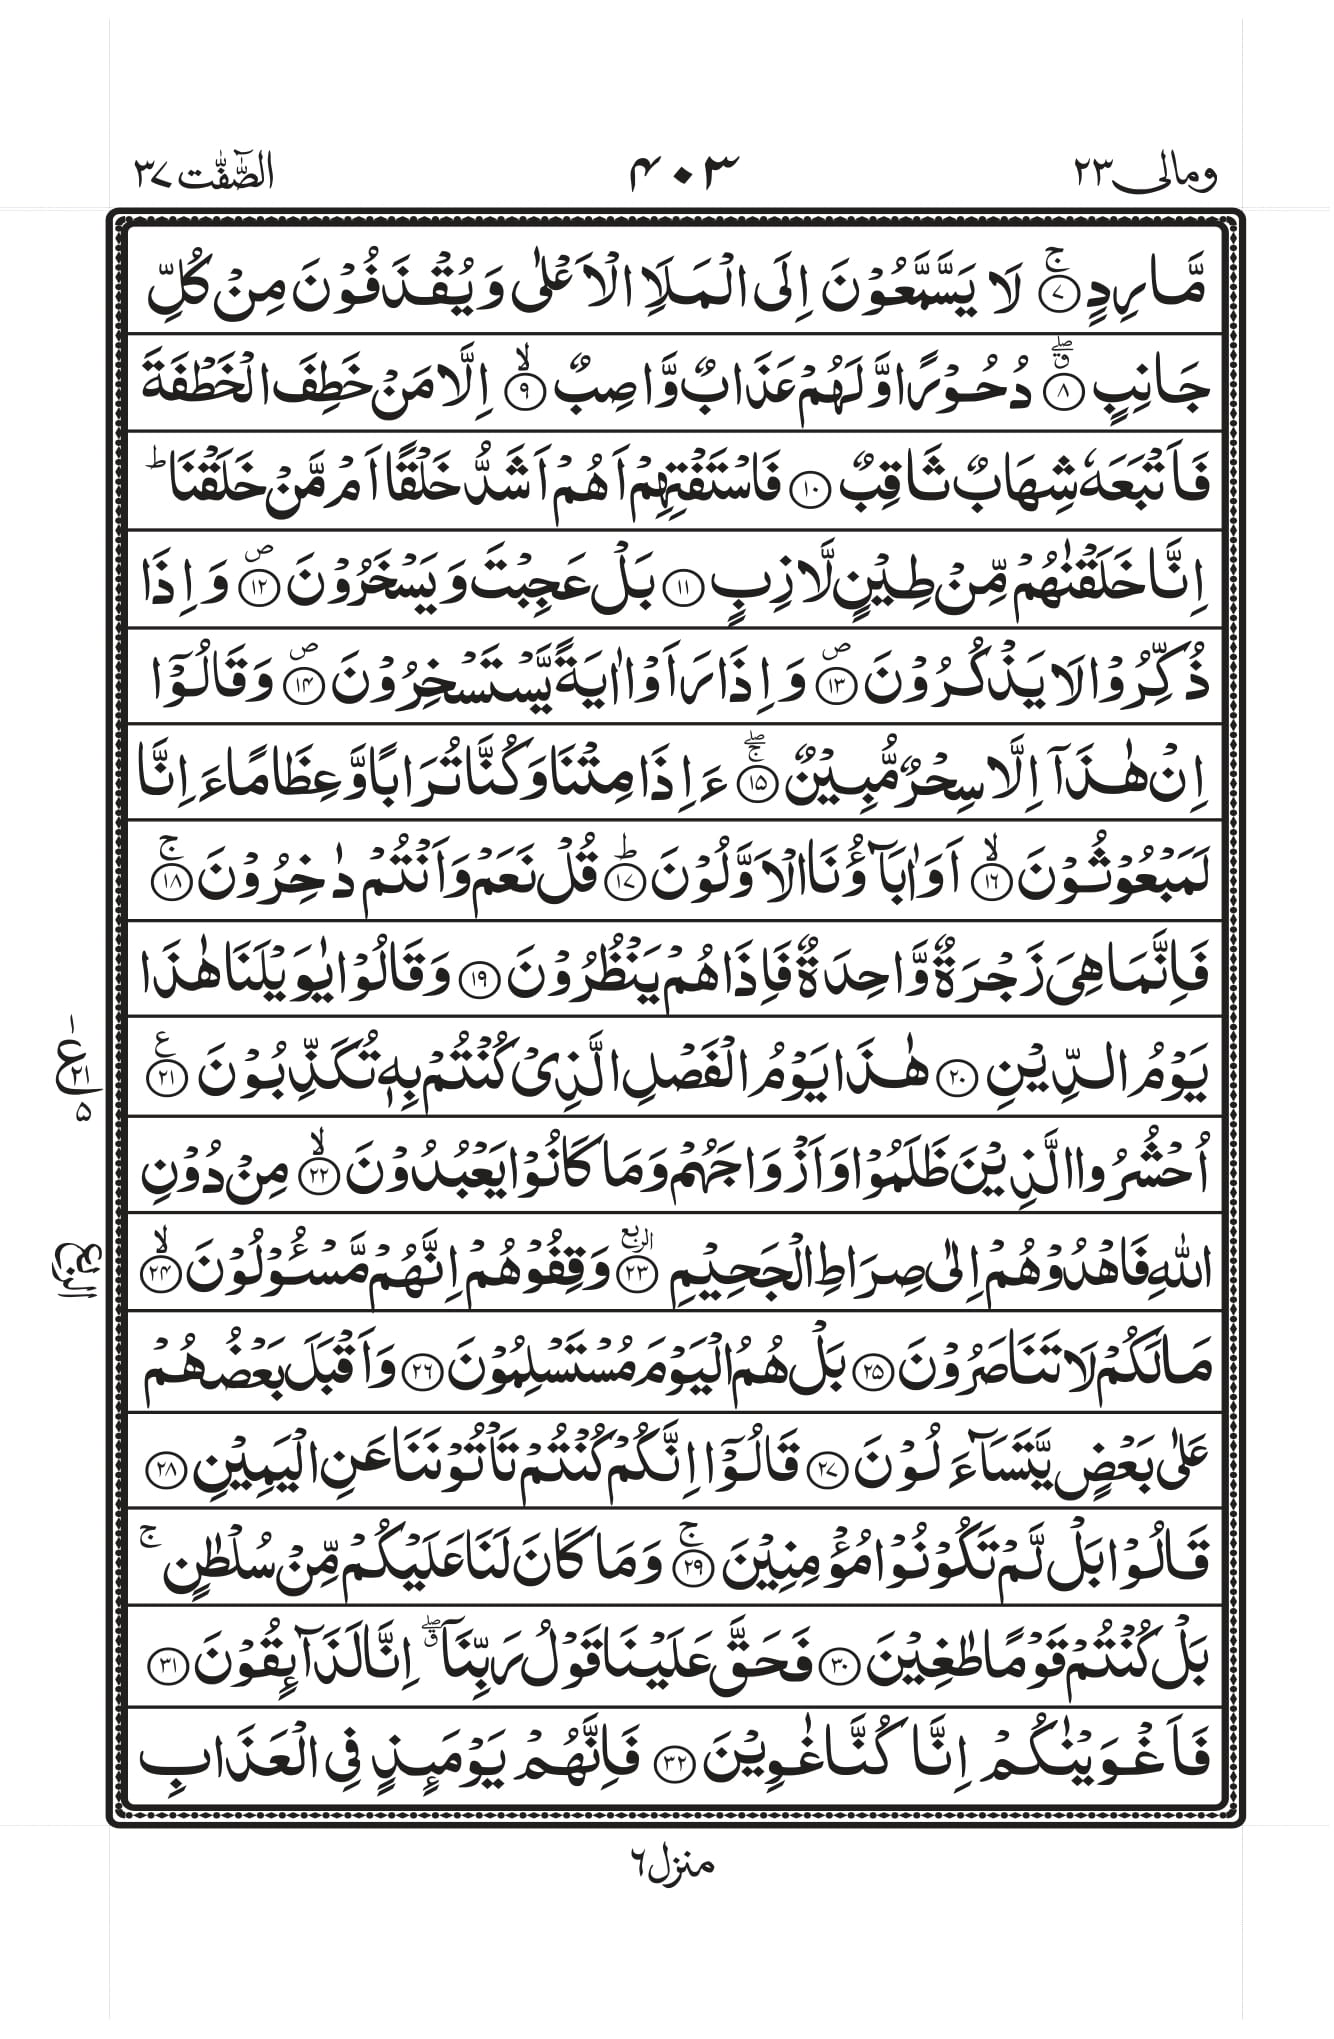 ومالی ۲۳
۴۰۳
الصّٰٓفّٰت ۳۷
مَّارِدٍ ۚ﴿۷﴾ لَا يَسَّمَّعُوْنَ اِلَى الْمَلَاِ الْاَعْلٰى وَيُقْذَفُوْنَ مِنْ كُلِّ
جَانِبٍ ۖۗ﴿۸﴾ دُحُوْرًا وَّلَهُمْ عَذَابٌ وَّاصِبٌ ۙ﴿۹﴾ اِلَّا مَنْ خَطِفَ الْخَطْفَةَ
فَاَتْبَعَهٗ شِهَابٌ ثَاقِبٌ ﴿۱۰﴾ فَاسْتَفْتِهِمْ اَهُمْ اَشَدُّ خَلْقًا اَمْ مَّنْ خَلَقْنَا ؕ
اِنَّا خَلَقْنٰهُمْ مِّنْ طِيْنٍ لَّازِبٍ ﴿۱۱﴾ بَلْ عَجِبْتَ وَيَسْخَرُوْنَ ۪﴿۱۲﴾ وَاِذَا
ذُكِّرُوْا لَا يَذْكُرُوْنَ ۪﴿۱۳﴾ وَاِذَا رَاَوْا اٰيَةً يَّسْتَسْخِرُوْنَ ۪﴿۱۴﴾ وَقَالُوْۤا
اِنْ هٰذَاۤ اِلَّا سِحْرٌ مُّبِيْنٌ ۚۖ﴿۱۵﴾ ءَاِذَا مِتْنَا وَكُنَّا تُرَابًا وَّعِظَامًا ءَاِنَّا
لَمَبْعُوْثُوْنَ ۙ﴿۱۶﴾ اَوَاٰبَآؤُنَا الْاَوَّلُوْنَ ؕ﴿۱۷﴾ قُلْ نَعَمْ وَاَنْتُمْ دٰخِرُوْنَ ۚ﴿۱۸﴾
فَاِنَّمَا هِيَ زَجْرَةٌ وَّاحِدَةٌ فَاِذَا هُمْ يَنْظُرُوْنَ ﴿۱۹﴾ وَقَالُوْا يٰوَيْلَنَا هٰذَا
يَوْمُ الدِّيْنِ ﴿۲۰﴾ هٰذَا يَوْمُ الْفَصْلِ الَّذِيْ كُنْتُمْ بِهٖ تُكَذِّبُوْنَ ﴿۲۱﴾ ع
۱
ع
۲۱
۵
اُحْشُرُوا الَّذِيْنَ ظَلَمُوْا وَاَزْوَاجَهُمْ وَمَا كَانُوْا يَعْبُدُوْنَ ۙ﴿۲۲﴾ مِنْ دُوْنِ
اللّٰهِ فَاهْدُوْهُمْ اِلٰى صِرَاطِ الْجَحِيْمِ ﴿۲۳﴾ الربع وَقِفُوْهُمْ اِنَّهُمْ مَّسْـُٔوْلُوْنَ ۙ﴿۲۴﴾
الربع
مَا لَكُمْ لَا تَنَاصَرُوْنَ ﴿۲۵﴾ بَلْ هُمُ الْيَوْمَ مُسْتَسْلِمُوْنَ ﴿۲۶﴾ وَاَقْبَلَ بَعْضُهُمْ
عَلٰى بَعْضٍ يَّتَسَآءَلُوْنَ ﴿۲۷﴾ قَالُوْۤا اِنَّكُمْ كُنْتُمْ تَاْتُوْنَنَا عَنِ الْيَمِيْنِ ﴿۲۸﴾
قَالُوْا بَلْ لَّمْ تَكُوْنُوْا مُؤْمِنِيْنَ ۚ﴿۲۹﴾ وَمَا كَانَ لَنَا عَلَيْكُمْ مِّنْ سُلْطٰنٍ ۚ
بَلْ كُنْتُمْ قَوْمًا طٰغِيْنَ ﴿۳۰﴾ فَحَقَّ عَلَيْنَا قَوْلُ رَبِّنَاۤ ۖۗ اِنَّا لَذَآئِقُوْنَ ﴿۳۱﴾
فَاَغْوَيْنٰكُمْ اِنَّا كُنَّا غٰوِيْنَ ﴿۳۲﴾ فَاِنَّهُمْ يَوْمَئِذٍ فِي الْعَذَابِ
منزل ٦